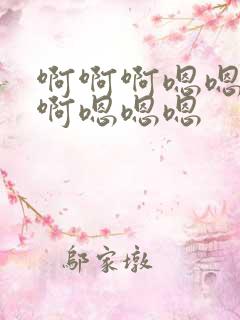 啊啊啊嗯嗯
啊嗯嗯嗯
鄔家墩